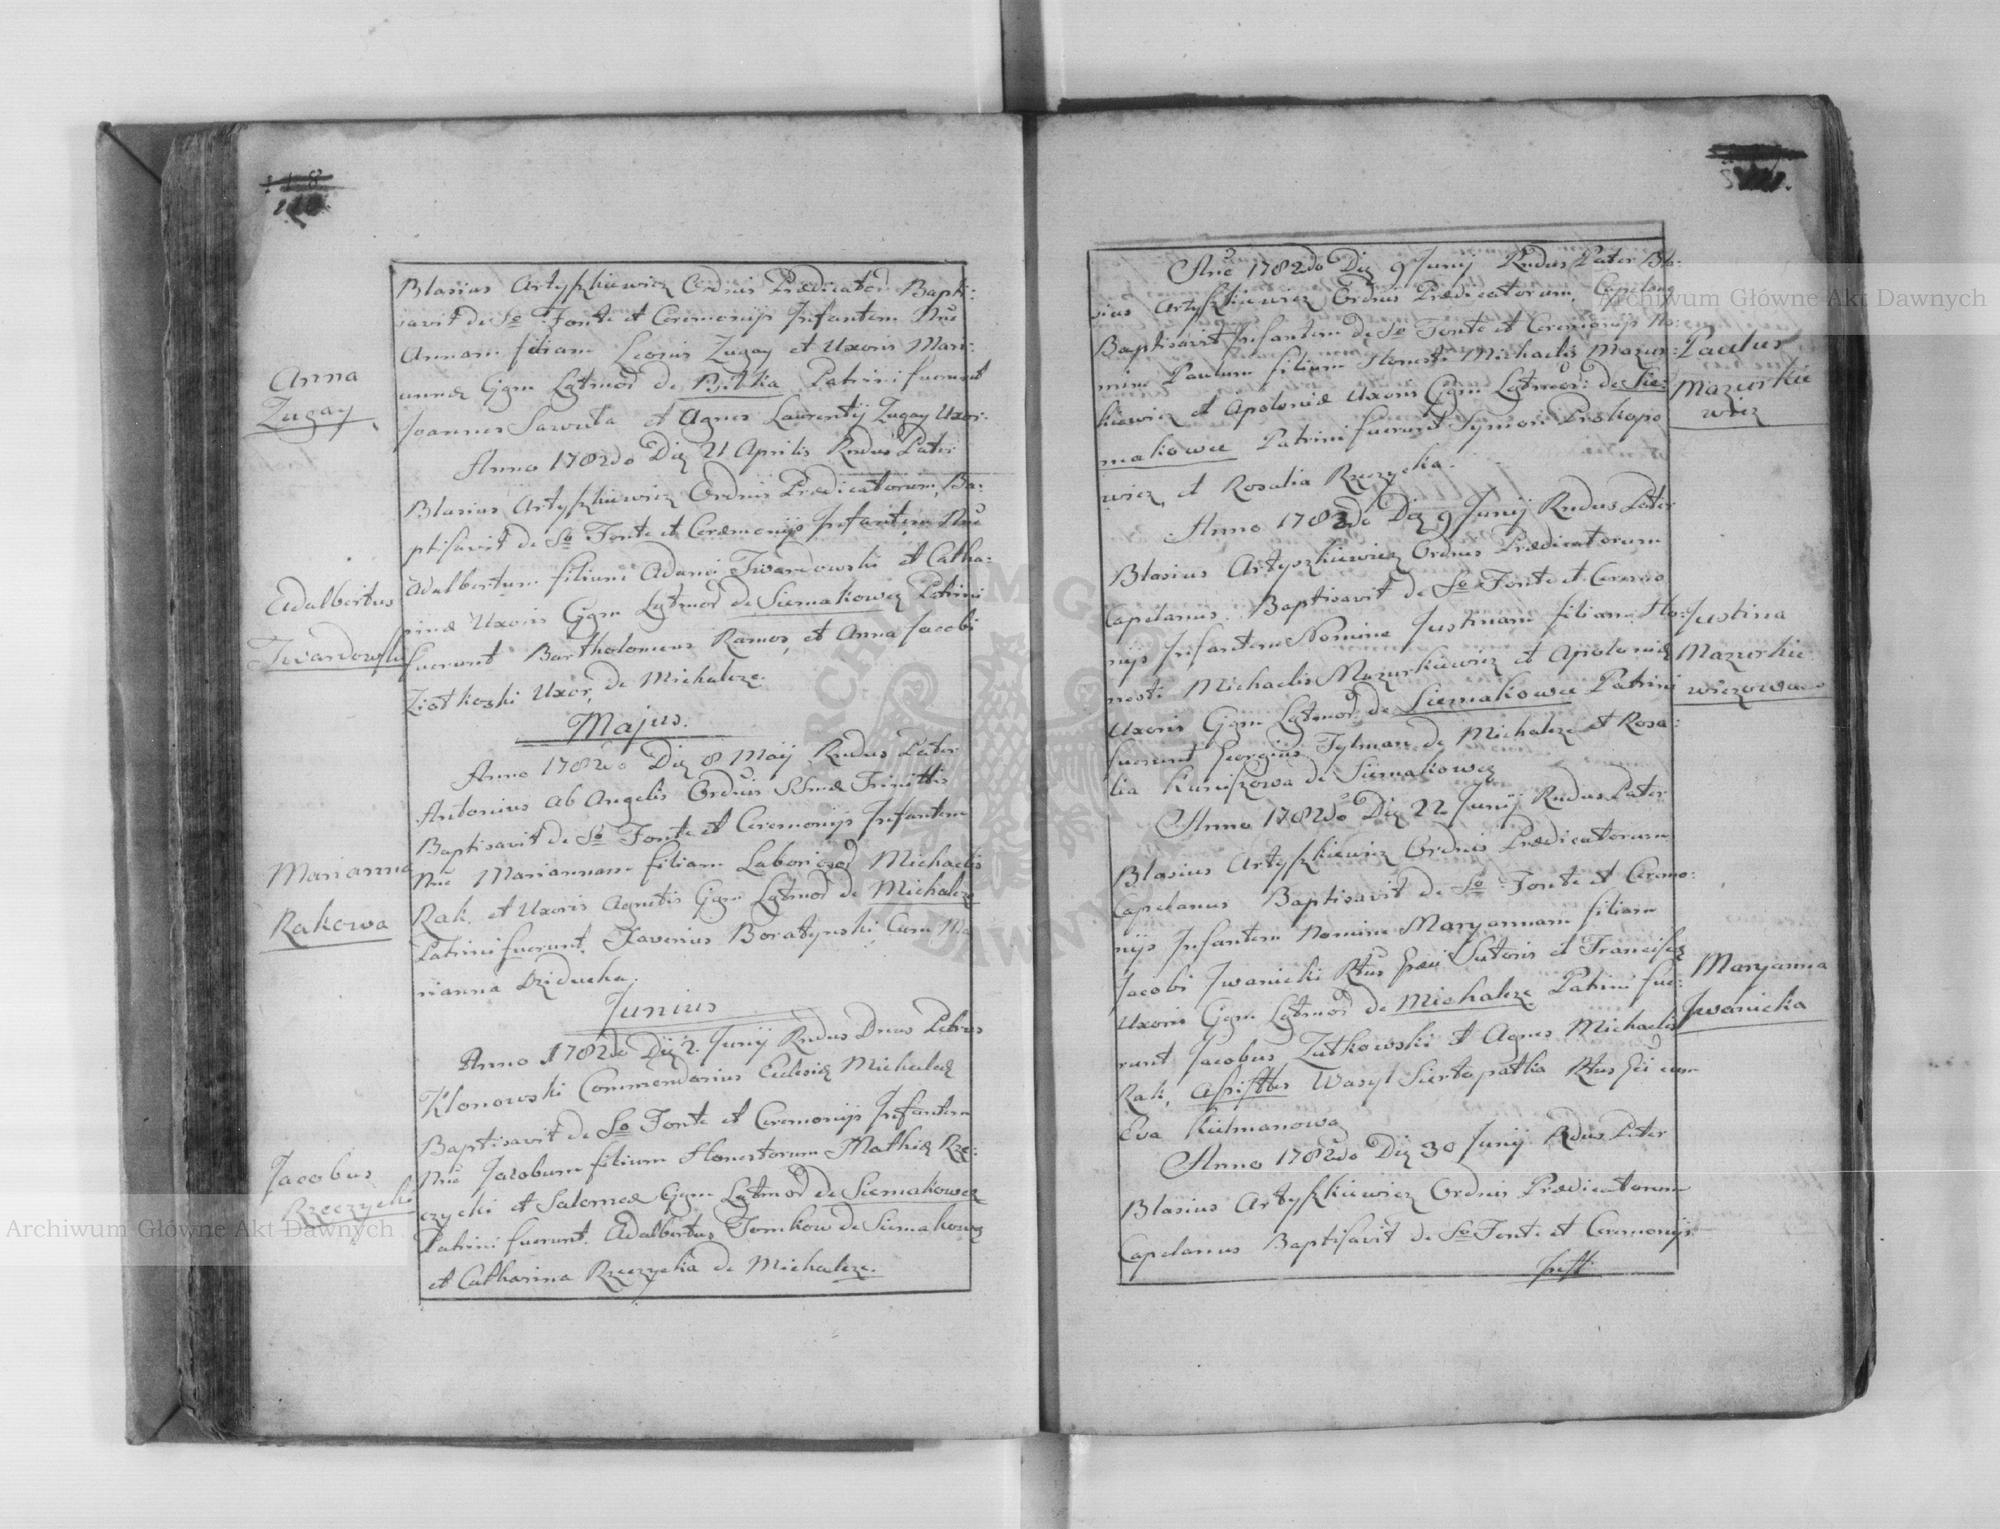 Anna
Zugay
Adalbertus
Twardowski
Marianna
Rakowa
Jacobus
Rzeczycki
Blasius Artyszkiewicz Ordinis Prædicator Bapti:
savit de So Fonte et Ceremonijs Infantem Nne
Annam filiam Leonis Zugay et Uxoris Mari:
annæ Ggm Lgtmor de Bilka Patrini fuerunt
Joannes Sawuta et Agnes Laurentij Zugay Uxor.
Anno 1782do Die 21 Aprilis Rndus Pater
Blasius Artyszkiewicz Ordinis Prædicatorum, Ba:
ptisavit de So Fonte et Ceremonijs Infantem Nne
Adalbertum filium Adami Twardowski et Catha:
rinæ Uxoris Ggm Lgtmor de Siemakowce Patrini
fuerunt Bartholomeus Ramos, et Anna Jacobi
Ziołkoski Uxor, de Michalcze.
Majus.
Anno 1782do Die 8 Maij Rndus Pater
Antonius ab Angelis Ordinis SSmæ Trinittis
Baptisavit de So Fonte et Ceremonijs Infantem
Nne Mariannam filiam Laboriosor Michaelis
Rak et Uxoris Agnetis Ggm Lgtmor de Michalcze
Patrini fuerunt. Xaverius Boratynski Cum Ma
rianna Dziducha.
Junius
Anno 1782do Die 2. Junij Rndus Dnus Petrus
Klonowski Commendarius Eclesiæ Michalcæ
Baptisavit de So Fonte et Ceremonijs Infantem
Nne Jacobum filium Honestorum Mathiæ Rze:
czycki et Salomeæ Ggm Lgtmor de Siemakowce
Patrini fuerunt. Adalbertus Tomkow de Siemakowce
et Catharina Rzeczycka de Michalcze.
Ano 1782do Die 9 Junij Rndus Pater Bla:
sius Artyszkiewicz Ordinis Prædicatorum, Capelanus
Baptisavit Infantem de So Fonte et Ceremonijs No:
mine Paulum filium Honesti Michaelis Mazur:
kiewicz et Apoloniæ Uxoris Ggm Lgtmor: de Sie:
makowce Patrini fuerunt Symon Prokopo
wicz et Rosalia Rzeczycka.
Anno 1782do Die 9 Junij Rndus Pater
Blasius Artyszkiewicz Ordinis Prædicatorum
Capelanus. Baptisavit de So Fonte et Ceremo
nijs Infantem Nomine Justinam filiam Ho:
nesti Michaelis Mazurkiewicz et Apoloniæ
Uxoris Ggm Lgtmor de Siemakowce Patrini
fuerunt Georgius Tylman de Michalcze et Rosa:
lia Kuriszowa de Siemakowce
Anno 1782do Die 22 Junij Rndus Pater
Blasius Artyszkiewicz Ordinis Prædicatorum
Capelanus Baptisavit de So Fonte et Ceremo:
nijs Infantem Nomine Maryannam filiam
Jacobi Jwanicki Rtus Græci Sutoris et Franciscæ
Uxoris Ggm Lgtmor de Michalcze Patrini fue:
runt Jacobus Zutkowski et Agnes Michaelis
Rak, Assisttbus Wasyl Siertopatka Rtus Gci cum
Eva Kulmanowa
Anno 1782do Die 30 Junij Rdus Pater
Blasius Artyszkiewicz Ordinis Prædicatorum
Capelanus Baptisavit de So Fonte et Ceremonijs
Paulus
Mazurkie
wicz
Justina
Mazurkie
wiczowa
Maryanna
Jwanicka
Archiwum Główne Akt Dawnych
Archiwum Główne Akt Dawnych